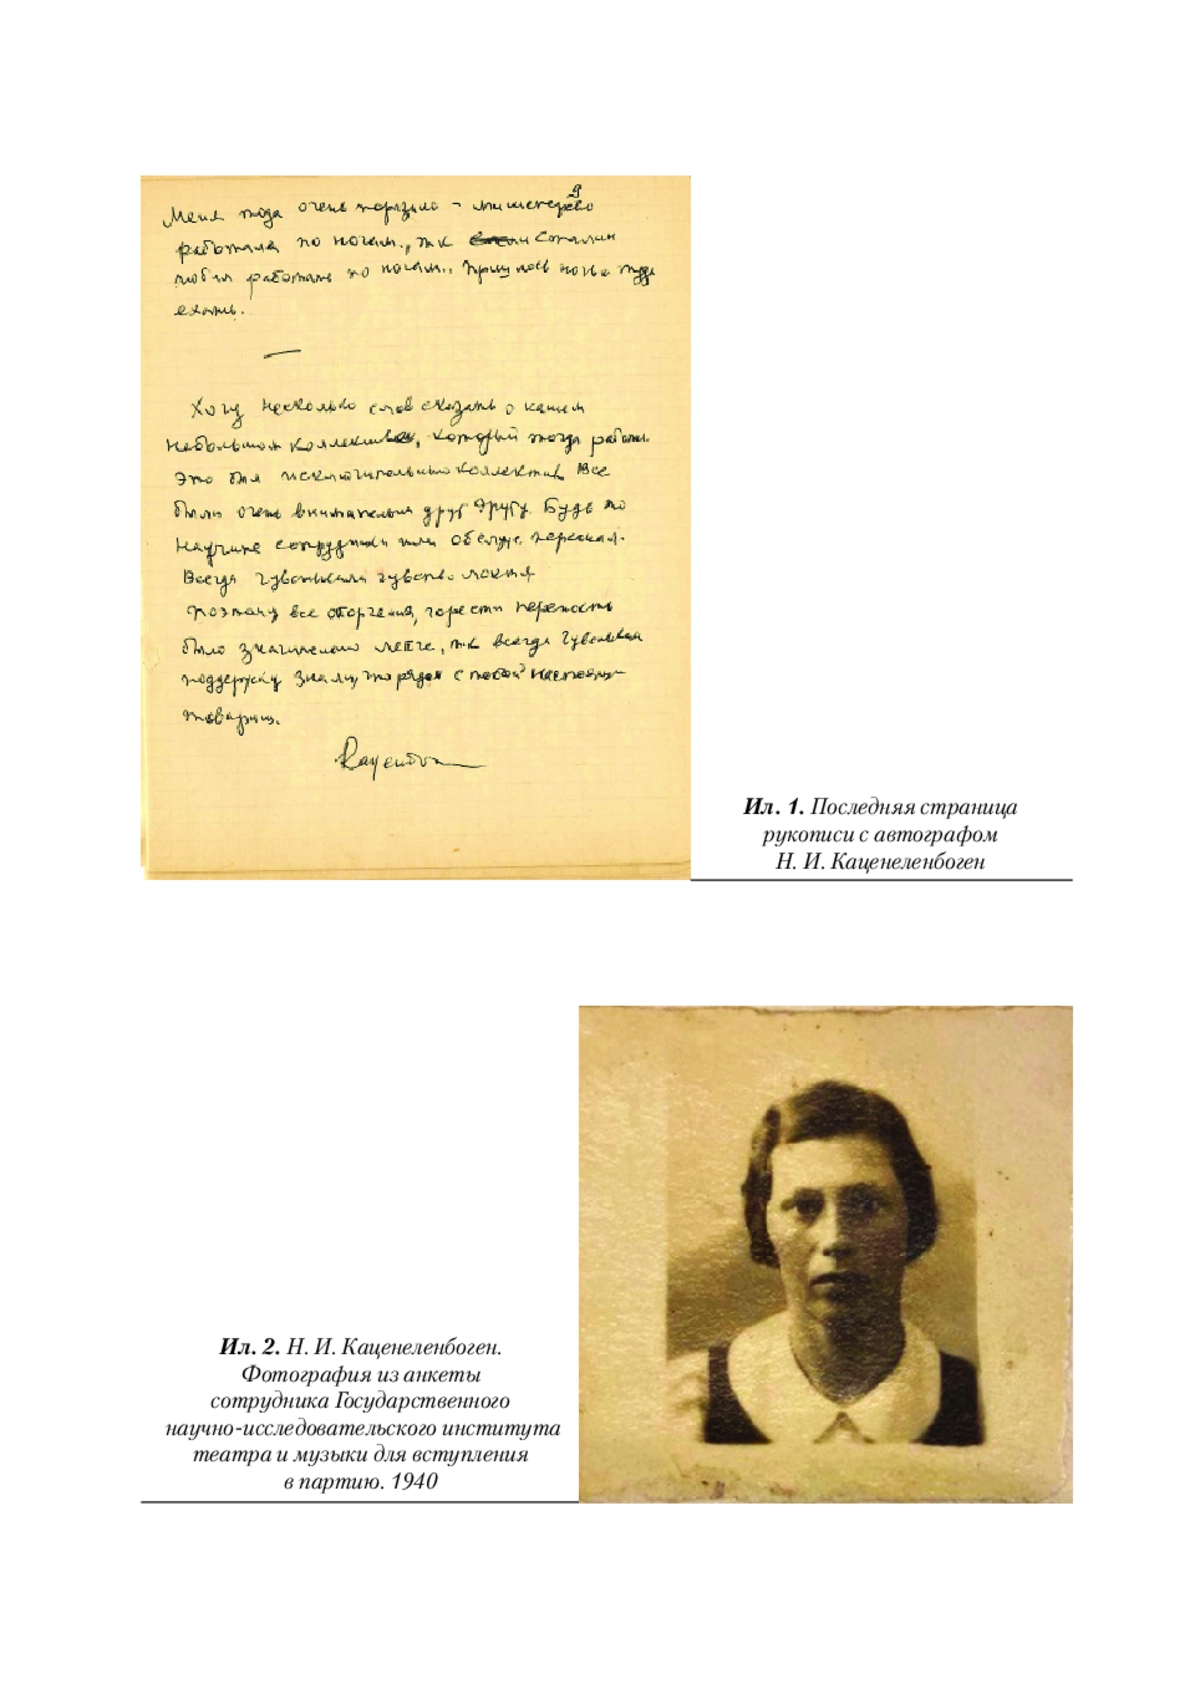 9
Меня тогда очень поразило – министерство
работало по ночам, тк Сталин
любил работать по ночам. Пришлось ночью туда
ехать.
Хочу несколько слов сказать о нашем
небольшом коллективе, который тогда работал
Это был исключительный коллектив. Все
были очень внимательны друг другу. Будь то
научные сотрудники или обслуж. персонал.
Всегда чувствовали чувство локтя
Поэтому все огорчения, горести пережить
было значительно легче, тк всегда чувствовал
поддержку знал, что рядом с тобой настоящий
товарищ.
Ил. 1. Последняя страница
рукописи с автографом
Н. И. Каценеленбоген
Ил. 2. Н. И. Каценеленбоген.
Фотография из анкеты
сотрудника Государственного
научно-исследовательского института
театра и музыки для вступления
в партию. 1940